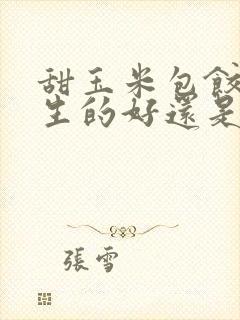 甜玉米包餃
生的好還是
張雪